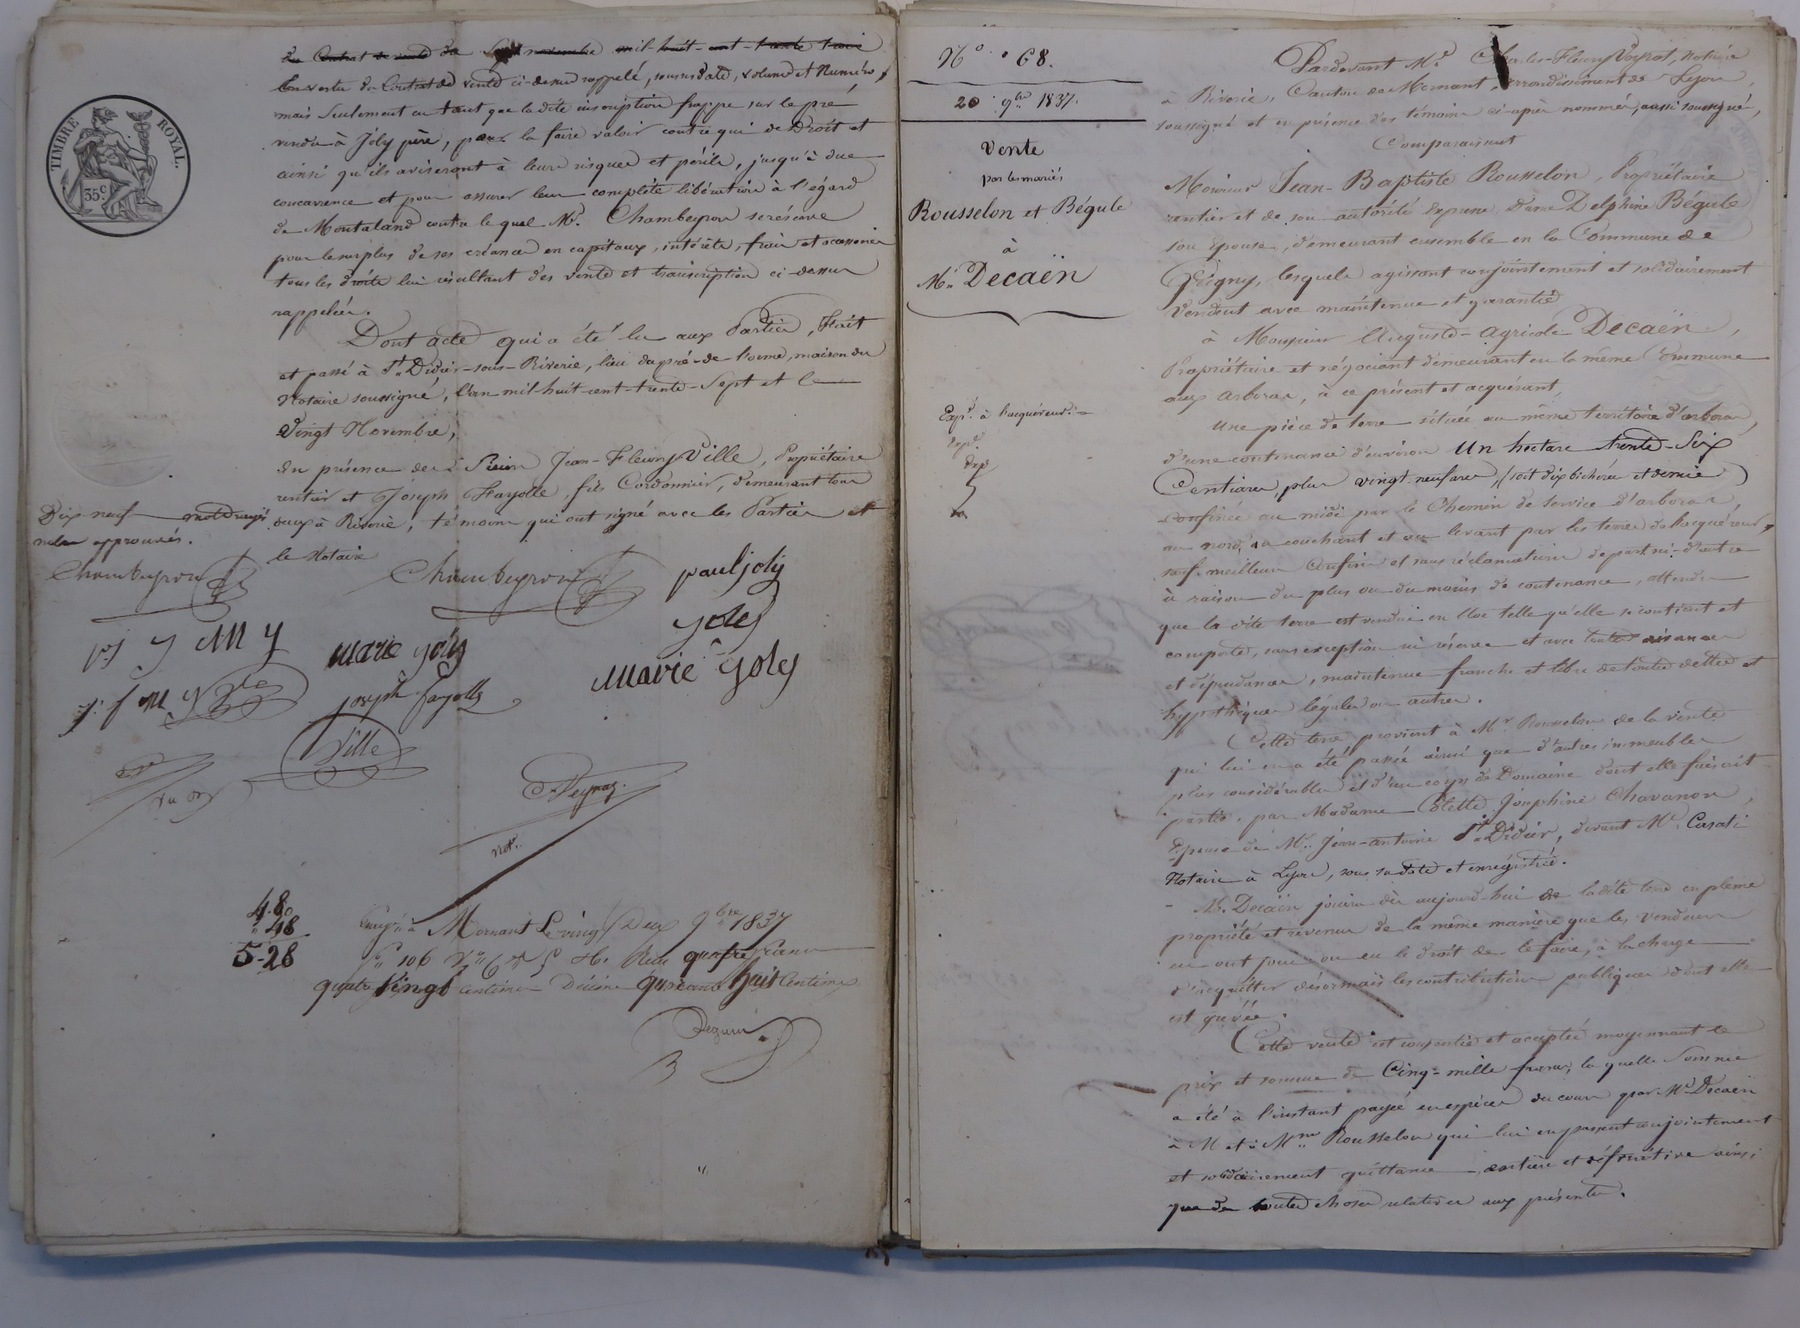 TIMBRE ROYAL.
35 c.
du Contrat de vente du Sept novembre mil-huit-cent-trente trois
En vertu du Contrat de vente ci-dessus rappelé, sous ses date, volume et Numéro,
mais Seulement en tant que la dite inscription frappe sur le pré
vendu à Joly père, pour la faire valoir contre qui de Droit et
ainsi qu'ils aviseront à leurs risques et périls, jusqu'à due
concurrence et pour assurer leur complète libération à l'égard
de Montaland contre lequel Mr. Chambeyron se réserve
pour le surplus de ses créances en capitaux, intérêts, frais et accessoires
tous les droits lui résultant des vente et transcription ci-dessus
rappelées.
Dont acte qui a été lu aux Parties, Fait
et passé à St. Didier-sous-Riverie, lieu du pré-de-l'orme, maison du
Notaire soussigné, l'an mil huit-cent-trente-Sept et le
Vingt Novembre,
En présence des Sieurs Jean-Fleury Ville, Propriétaire
rentier et Joseph Fayolle, fils Cordonnier, demeurant tous
deux à Riverie, témoins qui ont signé avec les Parties et
le Notaire
Dix neuf mots rayés
nuls approuvés.
Chambeyron
Chambeyron
paul joly
Joly
J M J
marie joly
marie Joly
joseph fayolle
Ville
Not.
4.80
" 48
5-28
Enreg. à Mornant Le vingt Deux 9bre 1837
fo. 106 Reçu quatre francs
quatre Vingt centimes Décime quarante huit Centimes
No. 68.
20 9bre 1837.
Vente
par les mariés
Rousselon et Bégule
à
Mr. Decaën
Exp. à l'acquéreur.
Pardevant Me. Charles-Fleury Notaire
à Riverie, Canton de Mornant, arrondissement de Lyon,
soussigné et en présence des témoins ci-après nommés, aussi soussignés,
Comparaissent
Monsieur Jean-Baptiste Rousselon, Propriétaire
rentier et de son autorité Expresse Dame Delphine Bégule
son Epouse, demeurant ensemble en la Commune de
Grigny, lesquels agissant conjointement et solidairement
Vendent avec maintenue et garantie
à Monsieur Auguste-Agricole Decaën,
Propriétaire et négociant demeurant en la même Commune
aux arboras, à ce présent et acquérant,
Une pièce de terre située au même territoire d'arboras,
d'une contenance d'environ Un hectare trente-Six
Centiares, plus vingt-neuf ares, (soit dix bicherées et demie)
confinée au midi par le Chemin de service d'arboras,
au nord, au couchant et au levant par les terres de l'acquéreur,
sauf meilleurs Confins et sans réclamation de part ni-d'autre
à raison du plus ou du moins de contenance, attendu
que la dite terre est vendue en bloc telle qu'elle se contient et
comporte, sans exception ni réserve et avec toutes aisances
et dépendances, maintenue franche et libre de toutes dettes et
hypothèques légales ou autres.
Cette terre provient à Mr Rousselon de la vente
qui lui en a été passée ainsi que d'autres immeubles
plus considérables et d'un corps de Domaine dont elle faisait
partie, par Madame Colette Joséphine Chavanon,
Epouse de Mr. St. Didier, devant Me. Casati
Notaire à Lyon, sous sa date et enregistré.
Mr. Decaën jouira dès aujourd-hui de ladite terre en pleine
propriété et revenus de la même manière que les vendeurs
en ont joui ou eu le droit de le faire, à la charge
d'acquitter désormais les contributions publiques dont elle
est grévée.
Cette vente est consentie et acceptée moyennant le
prix et somme de Cinq-mille francs, laquelle Somme
a été à l'instant payée en espèces du cours par Mr Decaën
à M et à Mme Rousselon qui lui en passent conjointement
et solidairement quittance entière et définitive ainsi
que de toutes choses relatives aux présentes.